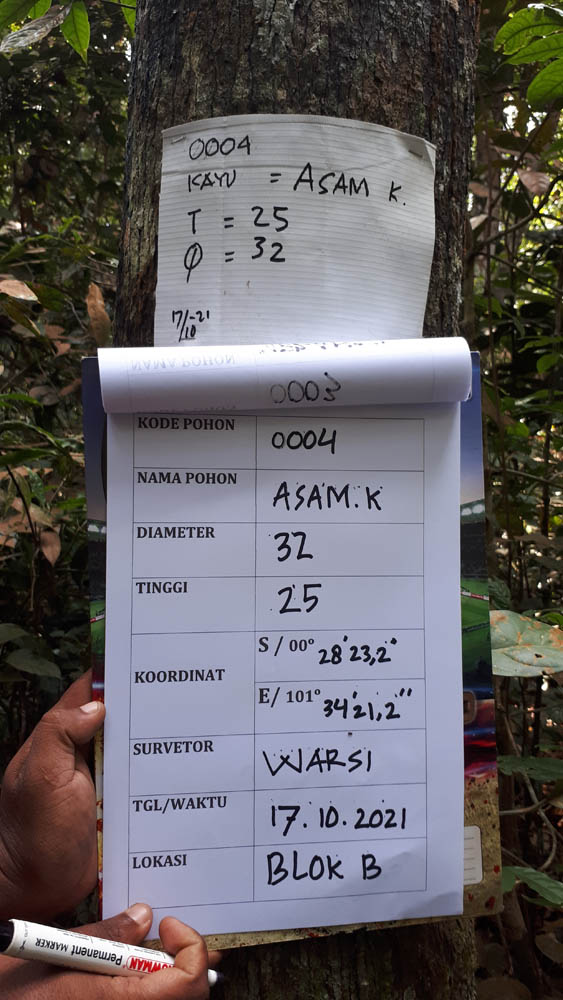 0004
KAYU = ASAM K.
T = 25
Ø = 32
17/10-21
NAMA POHON
0003
KODE POHON 0004
NAMA POHON ASAM.K
DIAMETER 32
TINGGI 25
KOORDINAT
S / 00° 28'23,2"
E/ 101° 34'21,2"
SURVETOR WARSI
TGL/WAKTU 17.10.2021
LOKASI BLOK B
SNOWMAN
Permanent MARKER